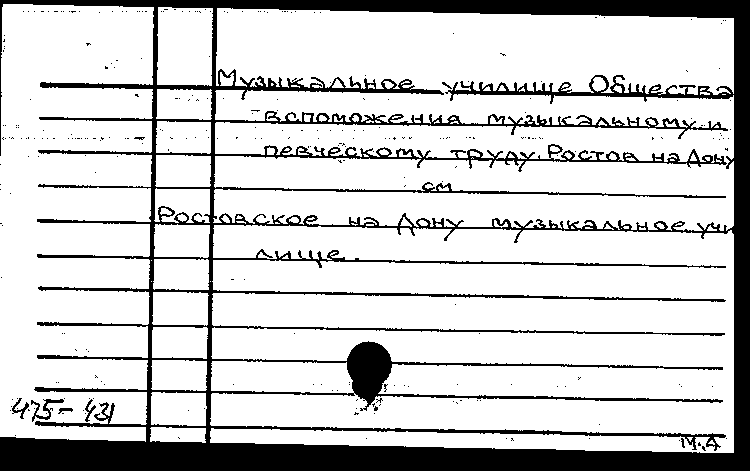 Музыкальное училище Общества
вспоможения музыкальному и
певческому труду. Ростов на Дону
см
Ростовское на Дону музыкальное учи
лище.
475-431
М.А